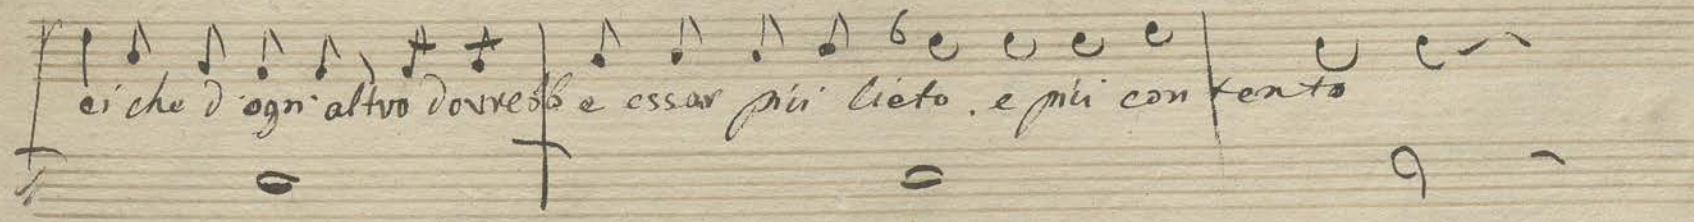 ei che d'ogn'altro dovrebbe essar più lieto. e più contento